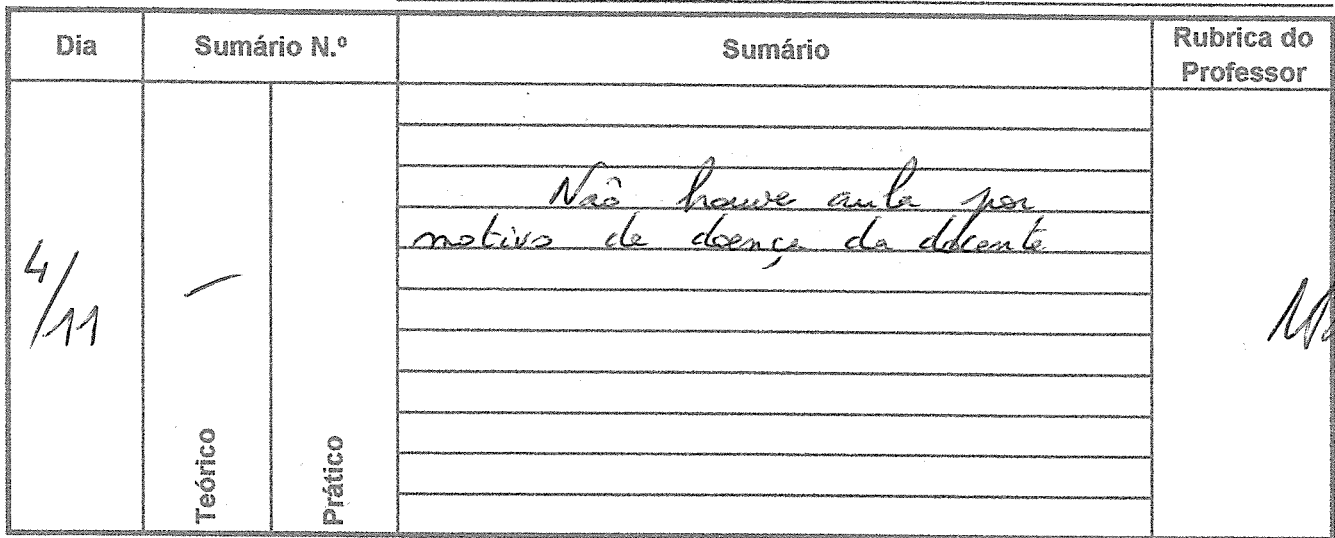 Dia
Sumário N.º
Sumário
Rubrica do
Professor
4/11
–
Teórico
Prático
Não houve aula por
motivo de doença da docente